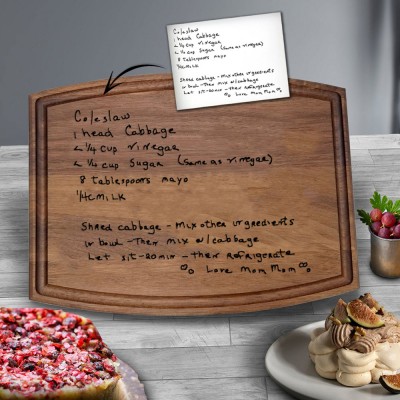 Coleslaw
1 head Cabbage
1/4 cup vinegar
1/4 cup Sugar (same as vinegar)
8 tablespoons mayo
1/4c Milk
Shred cabbage - Mix other ingredients
in bowl - Then mix w/cabbage
Let sit - 20 min - then Refrigerate
Love Mom Mom
Coleslaw
1 head Cabbage
1/4 cup vinegar
1/4 cup Sugar (same as vinegar)
8 tablespoons mayo
1/4c MiLK
Shred cabbage - Mix other ingredients
in bowl - Then mix w/cabbage
Let sit - 20 min - then Refrigerate
Love Mom Mom